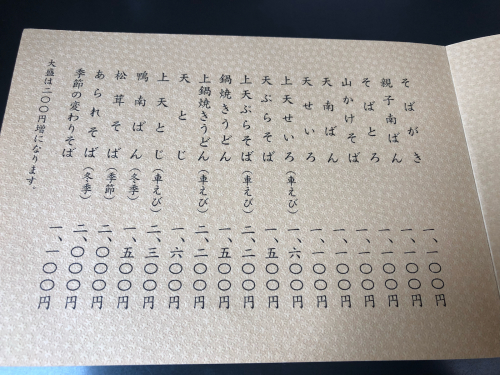 そばがき 一、一〇〇円
親子南ばん 一、一〇〇円
そばとろ 一、一〇〇円
山かけそば 一、一〇〇円
天南ばん 一、一〇〇円
天せいろ 一、一〇〇円
上天せいろ(車えび) 一、六〇〇円
天ぷらそば 一、五〇〇円
上天ぷらそば(車えび) 二、二〇〇円
鍋焼きうどん 一、五〇〇円
上鍋焼きうどん(車えび) 二、二〇〇円
天とじ 一、六〇〇円
上天とじ(車えび) 二、三〇〇円
鴨南ばん(冬季) 一、五〇〇円
松茸そば(季節) 二、〇〇〇円
あられそば(冬季) 二、〇〇〇円
季節の変わりそば 一、一〇〇円
大盛は二〇〇円増になります。